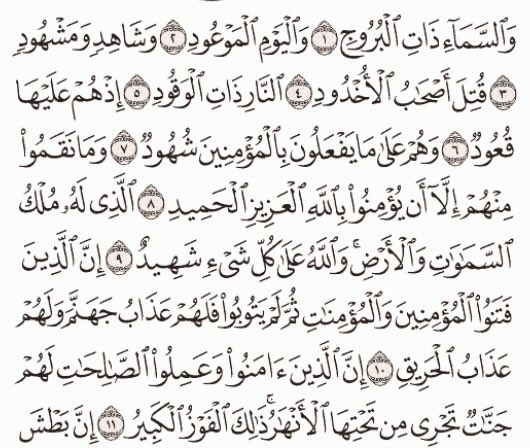 وَالسَّمَآءِ ذَاتِ الْبُرُوجِ ١ وَالْيَوْمِ الْمَوْعُودِ ٢ وَشَاهِدٍ وَمَشْهُودٍ
٣ قُتِلَ أَصْحَابُ الْأُخْدُودِ ٤ النَّارِ ذَاتِ الْوَقُودِ ٥ إِذْ هُمْ عَلَيْهَا
قُعُودٌ ٦ وَهُمْ عَلَىٰ مَا يَفْعَلُونَ بِالْمُؤْمِنِينَ شُهُودٌ ٧ وَمَا نَقَمُوا۟
مِنْهُمْ إِلَّآ أَن يُؤْمِنُوا۟ بِاللَّهِ الْعَزِيزِ الْحَمِيدِ ٨ الَّذِى لَهُۥ مُلْكُ
السَّمَـٰوَٰتِ وَالْأَرْضِ ۚ وَاللَّهُ عَلَىٰ كُلِّ شَىْءٍ شَهِيدٌ ٩ إِنَّ الَّذِينَ
فَتَنُوا۟ الْمُؤْمِنِينَ وَالْمُؤْمِنَـٰتِ ثُمَّ لَمْ يَتُوبُوا۟ فَلَهُمْ عَذَابُ جَهَنَّمَ وَلَهُمْ
عَذَابُ الْحَرِيقِ ١٠ إِنَّ الَّذِينَ ءَامَنُوا۟ وَعَمِلُوا۟ الصَّـٰلِحَـٰتِ لَهُمْ
جَنَّـٰتٌ تَجْرِى مِن تَحْتِهَا الْأَنْهَـٰرُ ۚ ذَٰلِكَ الْفَوْزُ الْكَبِيرُ ١١ إِنَّ بَطْشَ